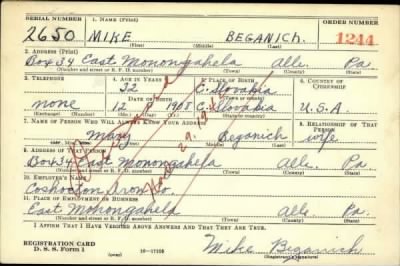 SERIAL NUMBER 1. NAME (Print) ORDER NUMBER
2650 MIKE BEGANICH. 1244
(First) (Middle) (Last)
2. ADDRESS (Print)
Box 34 East Monongahela Alle. Pa.
(Number and street or R. F. D. number) (Town) (County) (State)
3. TELEPHONE 4. AGE IN YEARS 5. PLACE OF BIRTH 6. COUNTRY OF CITIZENSHIP
32 C. Slovakia
DATE OF BIRTH (Town or county)
none 12 1908 C. Slovakia U.S.A.
(Exchange) (Number) (Mo.) (Day) (Yr.) (State or country)
7. NAME OF PERSON WHO WILL ALWAYS KNOW YOUR ADDRESS 8. RELATIONSHIP OF THAT PERSON
Mary Beganich wife
(Mr., Mrs., Miss) (First) (Middle) (Last)
9. ADDRESS OF THAT PERSON
Box 34 East Monongahela Alle. Pa.
(Number and street or R. F. D. number) (Town) (County) (State)
10. EMPLOYER'S NAME
Coshocton Iron Co.
11. PLACE OF EMPLOYMENT OR BUSINESS
East Monongahela Alle. Pa.
(Number and street or R. F. D. number) (Town) (County) (State)
I AFFIRM THAT I HAVE VERIFIED ABOVE ANSWERS AND THAT THEY ARE TRUE.
REGISTRATION CARD
D. S. S. Form 1 (over) Mike Beganich